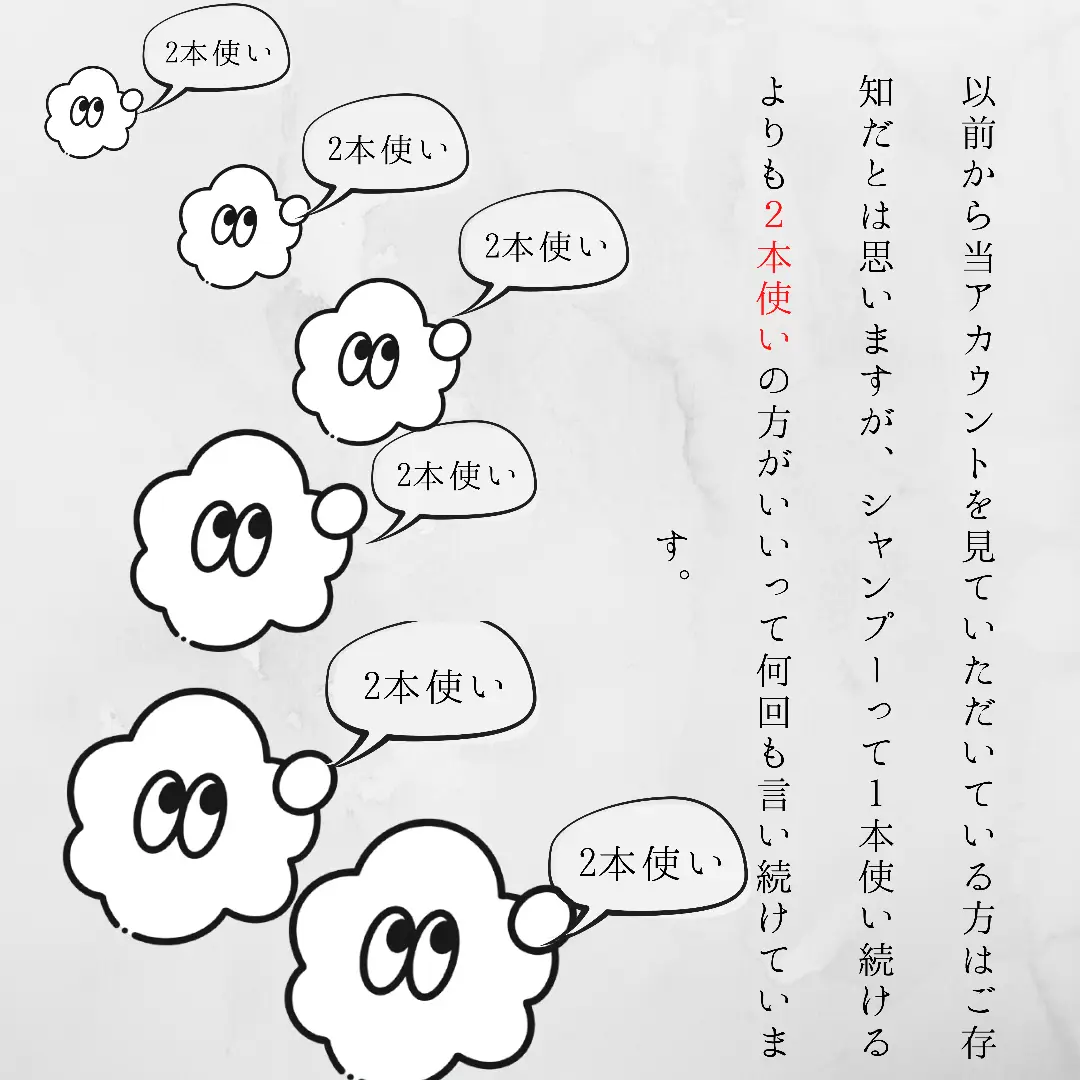 以前から当アカウントを見ていただいている方はご存
知だとは思いますが、シャンプーって１本使い続ける
よりも２本使いの方がいいって何回も言い続けていま
す。
2本使い
2本使い
2本使い
2本使い
2本使い
2本使い